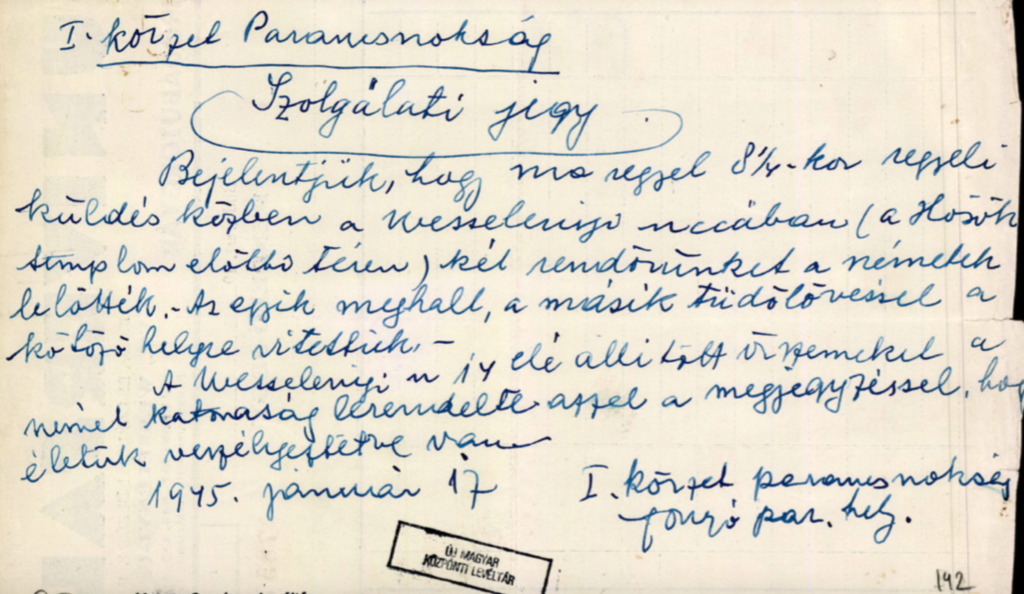 I. körzet Parancsnokság
Szolgálati jegy.
Bejelentjük, hogy ma reggel 8 1/4-kor reggeli
küldés közben a Wesselenyi uccában (a Hősök
templom előtti téren) két rendőrünket a németek
lelőtték.- Az egyik meghalt, a másik tüdőlövéssel a
kötöző helyre vitettük.-
A Wesselenyi u 14 elé állitott őrszemeket a
német katonaság lerendelte azzal a megjegyzéssel, hogy
életük veszélyeztetve van
1945. január 17
I. körzet parancsnokság
par. hely.
ÚJ MAGYAR
KÖZPONTI LEVÉLTÁR
142